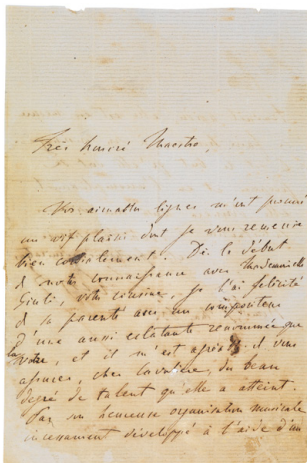 Très honoré Maestro,
Vos aimables lignes m'ont procuré
un vif plaisir dont je vous remercie
bien cordialement. Dès le début
de notre connaissance avec Mademoiselle
Giuli, votre cousine, je l'ai félicité
de sa parenté avec un compositeur
d'une aussi éclatante renommée que
la vôtre, et il m'est agréable de vous
assurer, cher du beau
degré de talent qu'elle a atteint
par son heureuse organisation musicale
incessament développé à l'aide d'un